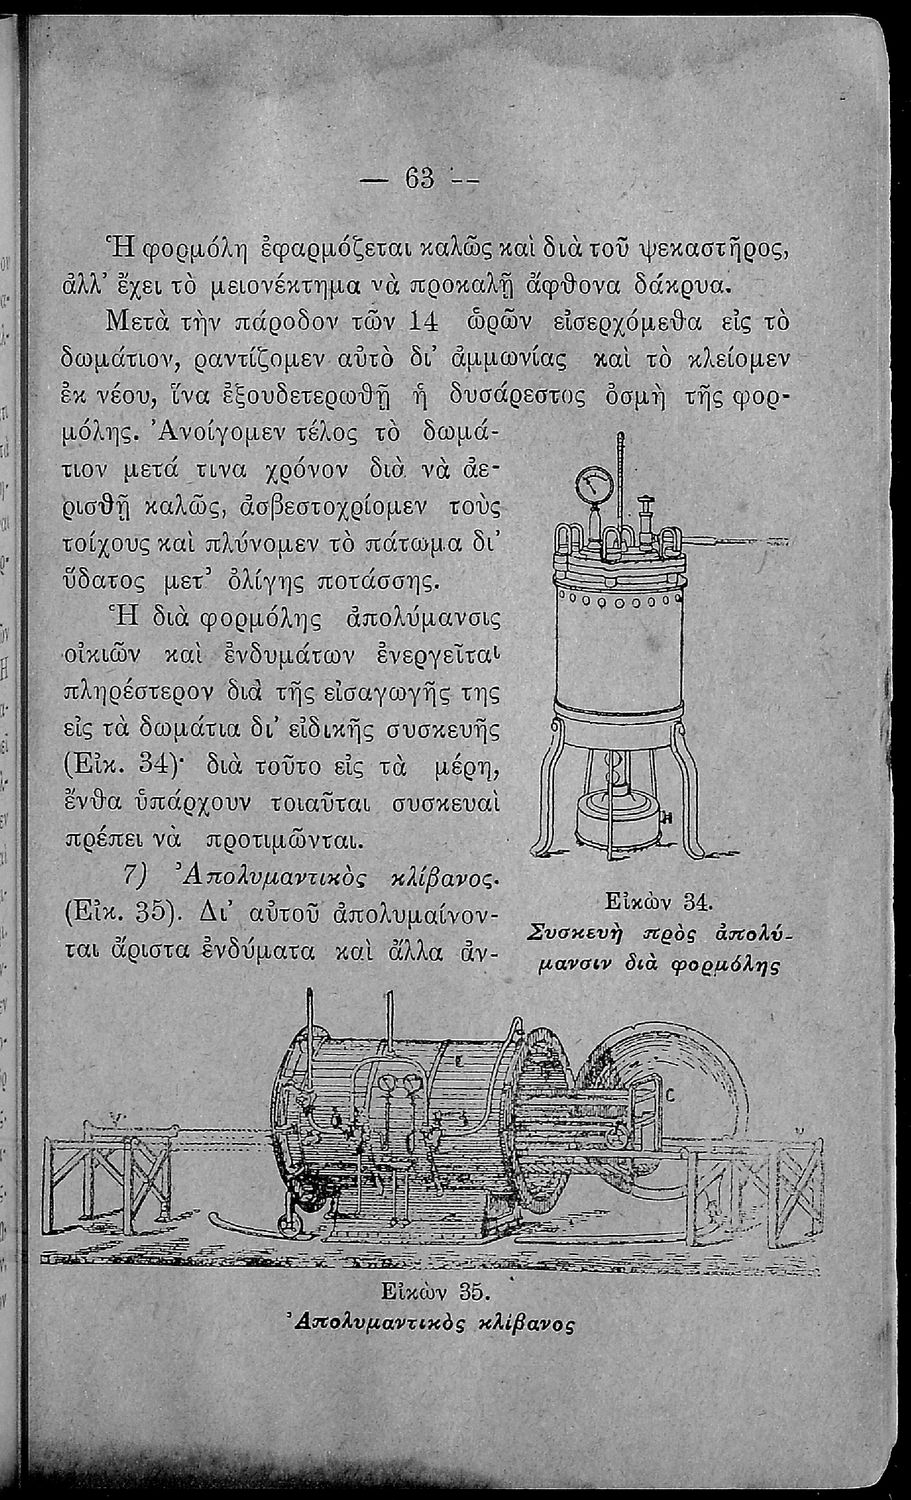 — 63 —
Ἡ φορμόλη ἐφαρμόζεται καλῶς καὶ διὰ τοῦ ψεκαστῆρος,
ἀλλ’ ἔχει τὸ μειονέκτημα νὰ προκαλῇ ἄφθονα δάκρυα.
Μετὰ τὴν πάροδον τῶν 14 ὡρῶν εἰσερχόμεθα εἰς τὸ
δωμάτιον, ραντίζομεν αὐτὸ δι’ ἀμμωνίας καὶ τὸ κλείομεν
ἐκ νέου, ἵνα ἐξουδετερωθῇ ἡ δυσάρεστος ὀσμὴ τῆς φορ-
μόλης. Ἀνοίγομεν τέλος τὸ δωμά-
τιον μετά τινα χρόνον διὰ νὰ ἀε-
ρισθῇ καλῶς, ἀσβεστοχρίομεν τοὺς
τοίχους καὶ πλύνομεν τὸ πάτωμα δι’
ὕδατος μετ’ ὀλίγης ποτάσσης.
Ἡ διὰ φορμόλης ἀπολύμανσις
οἰκιῶν καὶ ἐνδυμάτων ἐνεργεῖται
πληρέστερον διὰ τῆς εἰσαγωγῆς της
εἰς τὰ δωμάτια δι’ εἰδικῆς συσκευῆς
(Εἰκ. 34)· διὰ τοῦτο εἰς τὰ μέρη,
ἔνθα ὑπάρχουν τοιαῦται συσκευαὶ
πρέπει νὰ προτιμῶνται.
7) Ἀπολυμαντικὸς κλίβανος.
(Εἰκ. 35). Δι’ αὐτοῦ ἀπολυμαίνον-
ται ἄριστα ἐνδύματα καὶ ἄλλα ἀν-
Εἰκὼν 34.
Συσκευὴ πρὸς ἀπολύ-
μανσιν διὰ φορμόλης
C
Εἰκὼν 35.
Ἀπολυμαντικὸς κλίβανος